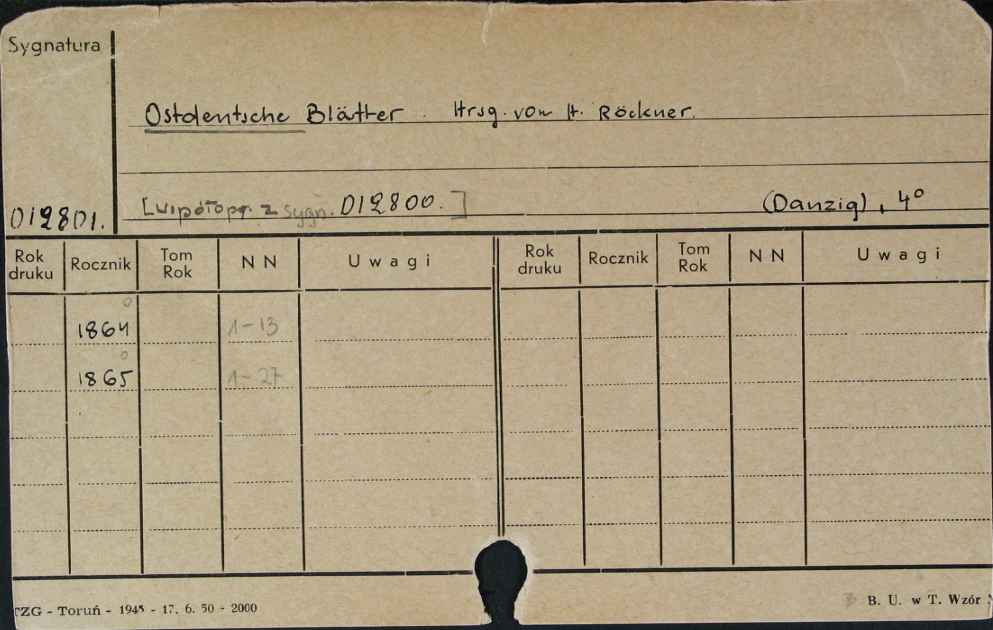 Sygnatura
Ostdeutsche Blätter. Hrsg. von H. Röckner.
012801.
[współopr. z sygn. 012800.]
(Danzig), 4°
Rok druku Rocznik Tom Rok NN Uwagi Rok druku Rocznik Tom Rok NN Uwagi
1864 1-13
1865 1-27
TZG - Toruń - 1948 - 17. 6. 50 - 2000
B. U. w T. Wzór